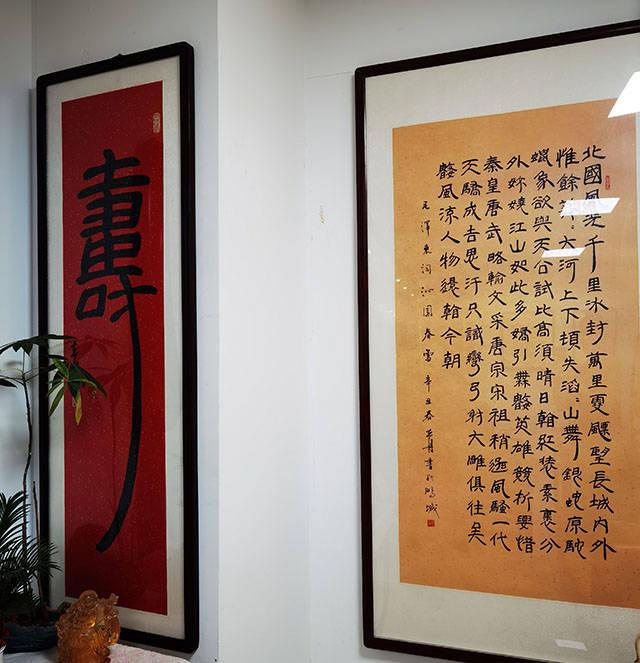 壽
北國風光千里冰封萬里雪飄望長城內外
惟餘莽〻大河上下頓失滔〻山舞銀蛇原馳
蠟象欲與天公試比高須晴日看紅裝素裹分
外妖嬈江山如此多嬌引無數英雄競折腰惜
秦皇漢武略輸文采唐宗宋祖稍遜風騷一代
天驕成吉思汗只識彎弓射大雕俱往矣
數風流人物還看今朝
毛澤東詞沁園春雪 辛丑春 書於鵬城